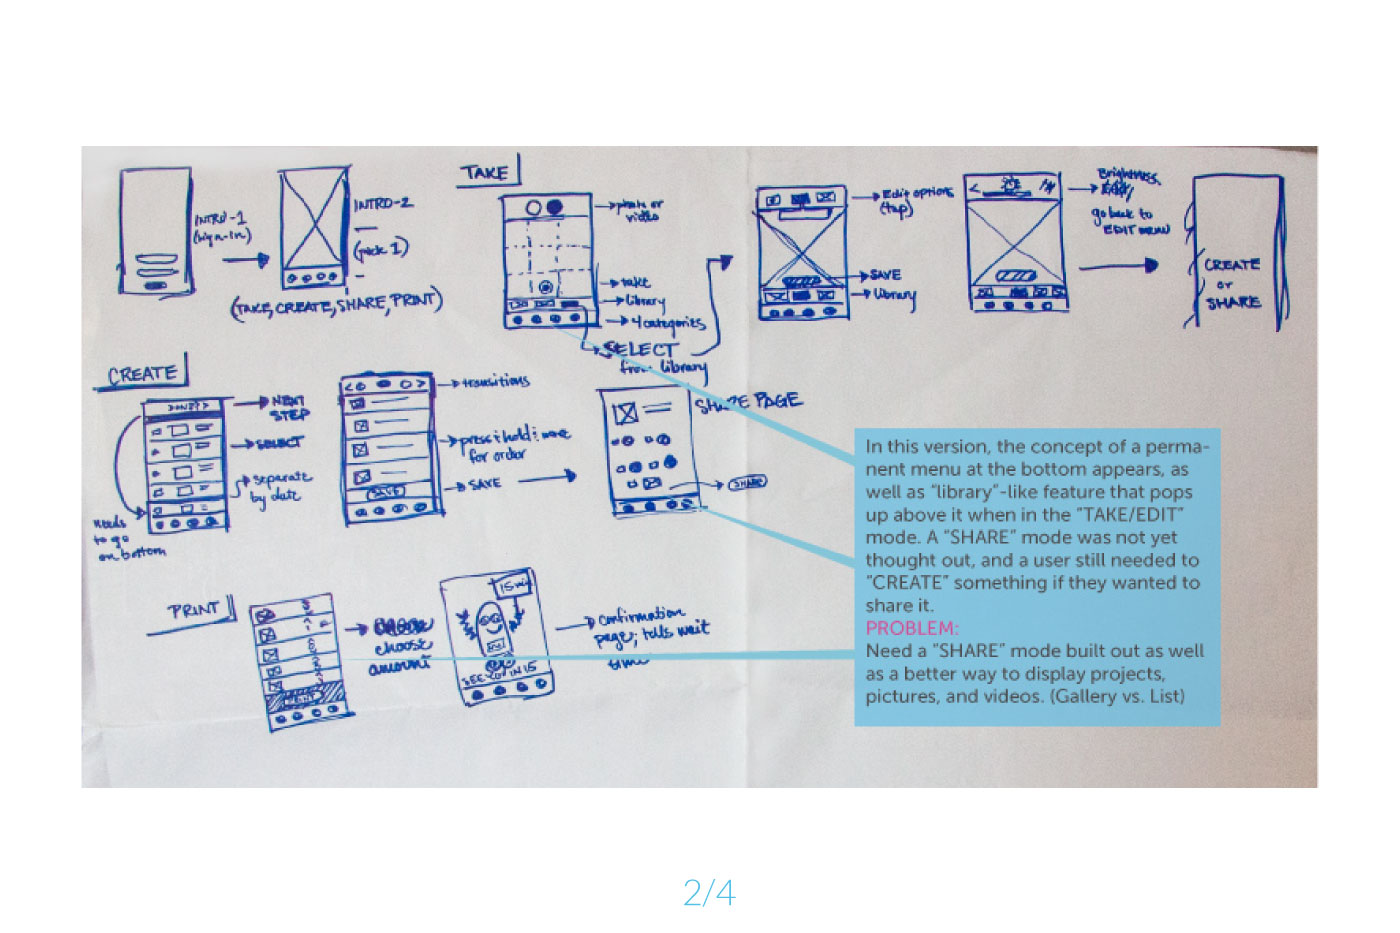 INTRO-1
(sign-in)
INTRO-2
(pick 1)
(TAKE, CREATE, SHARE, PRINT)
TAKE
photo or
video
take
library
4 categories
SELECT
from library
Edit options
(tap)
SAVE
library
Brightness
go back to
EDIT MENU
CREATE
or
SHARE
CREATE
NEXT
STEP
SELECT
separate
by date
needs
to go
on bottom
transitions
press + hold + move
for order
SAVE
SAVE
SHARE PAGE
SHARE
PRINT
choose
amount
15 min
SEE YOU IN 15
confirmation
page; tells wait
time
In this version, the concept of a perma-
nent menu at the bottom appears, as
well as "library"-like feature that pops
up above it when in the "TAKE/EDIT"
mode. A "SHARE" mode was not yet
thought out, and a user still needed to
"CREATE" something if they wanted to
share it.
PROBLEM:
Need a "SHARE" mode built out as well
as a better way to display projects,
pictures, and videos. (Gallery vs. List)
2/4